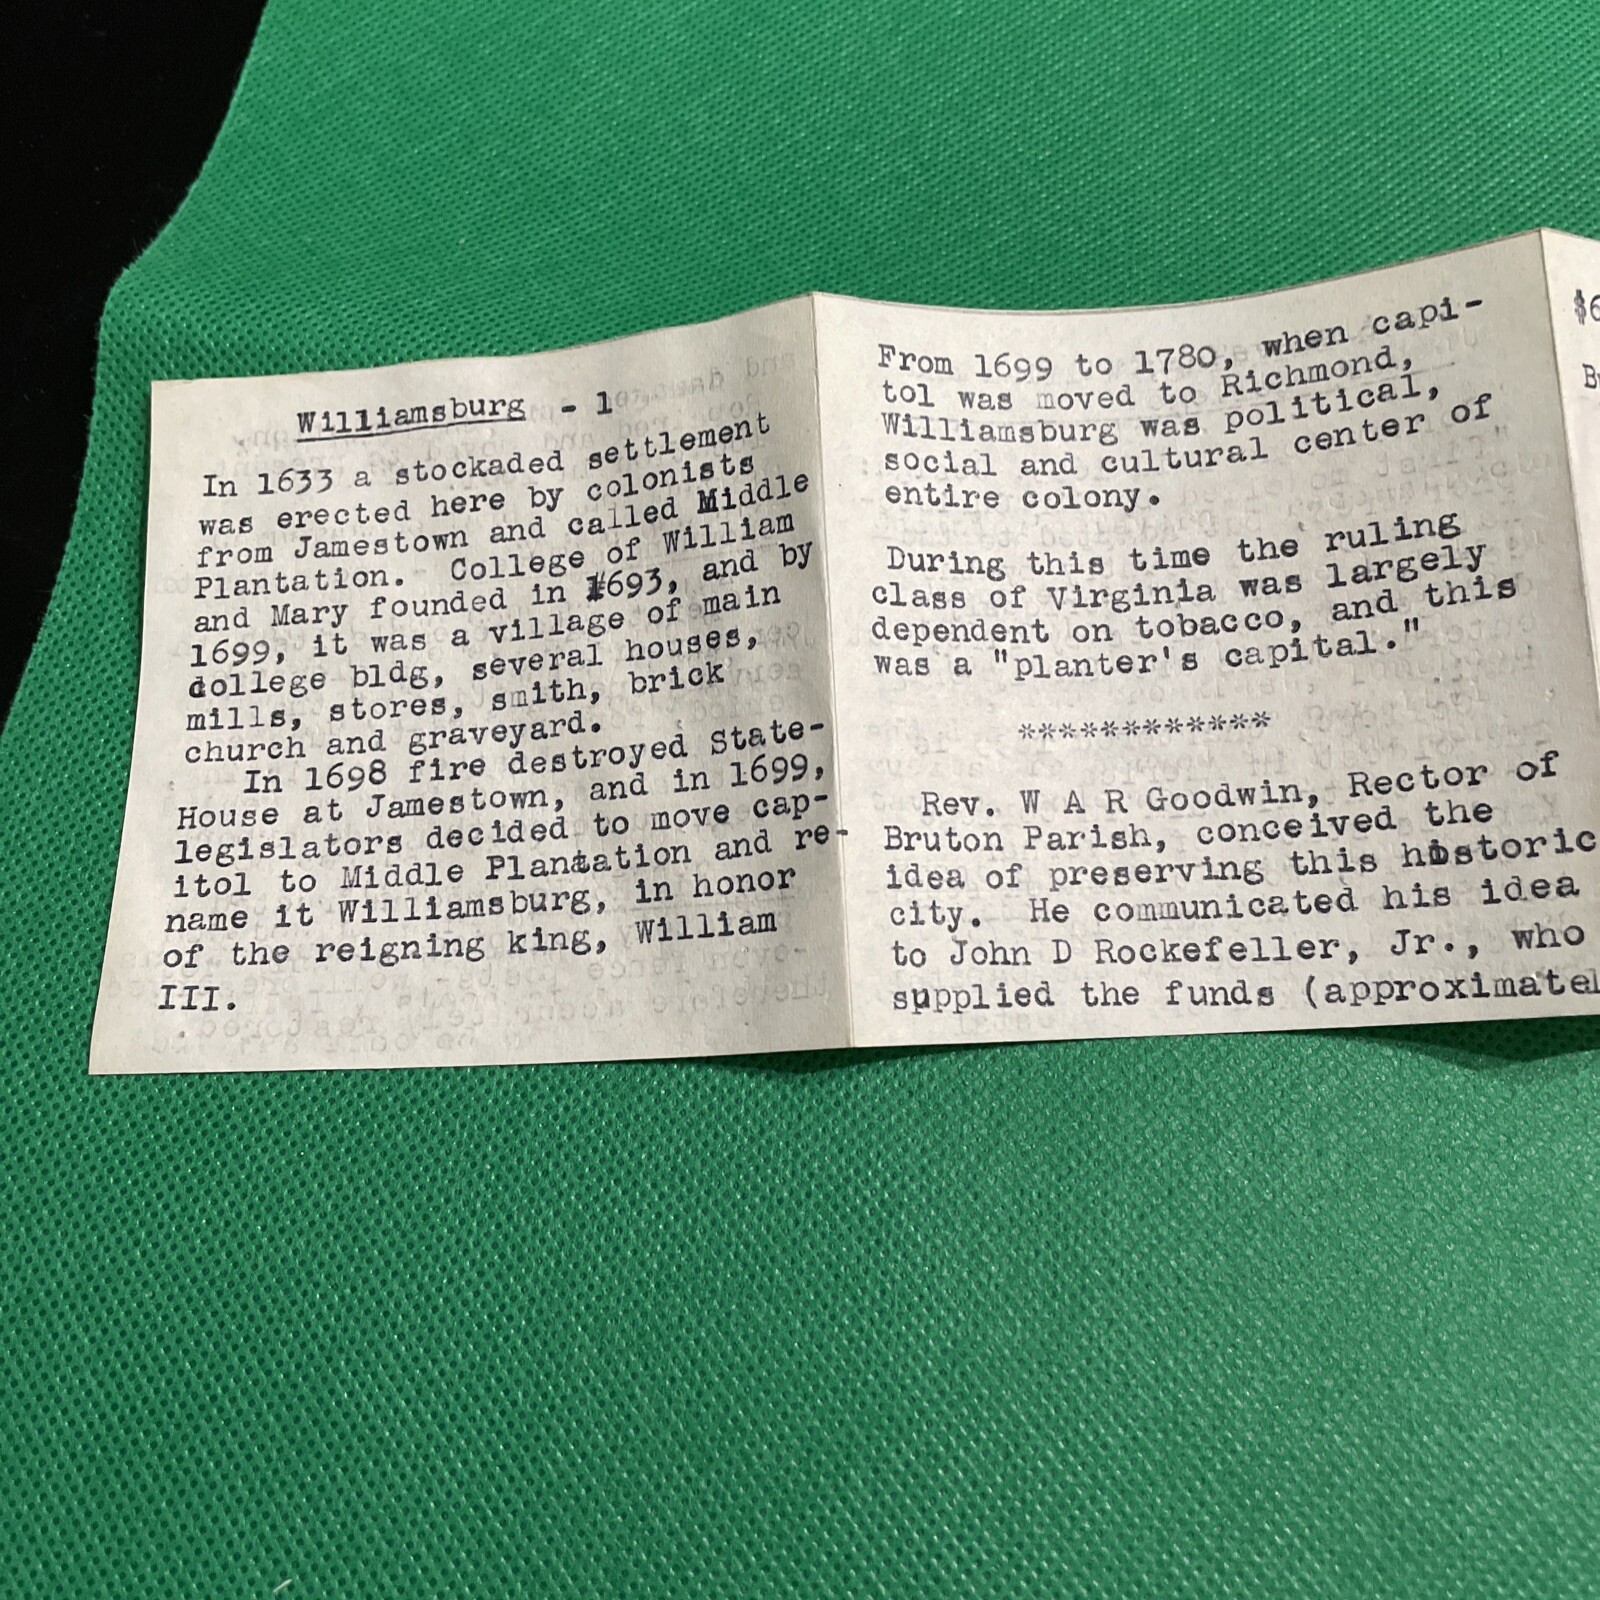 Williamsburg - 1
In 1633 a stockaded settlement
was erected here by colonists
from Jamestown and called Middle
Plantation. College of William
and Mary founded in 1693, and by
1699, it was a village of main
dollege bldg, several houses,
mills, stores, smith, brick
church and graveyard.
In 1698 fire destroyed State-
House at Jamestown, and in 1699,
legislators decided to move cap-
itol to Middle Plantation and re-
name it Williamsburg, in honor
of the reigning king, William
III.
From 1699 to 1780, when capi-
tol was moved to Richmond,
Williamsburg was political,
social and cultural center of
entire colony.
During this time the ruling
class of Virginia was largely
dependent on tobacco, and this
was a "planter's capital."
************
Rev. W A R Goodwin, Rector of
Bruton Parish, conceived the
idea of preserving this historic
city. He communicated his idea
to John D Rockefeller, Jr., who
supplied the funds (approximatel
$6
B